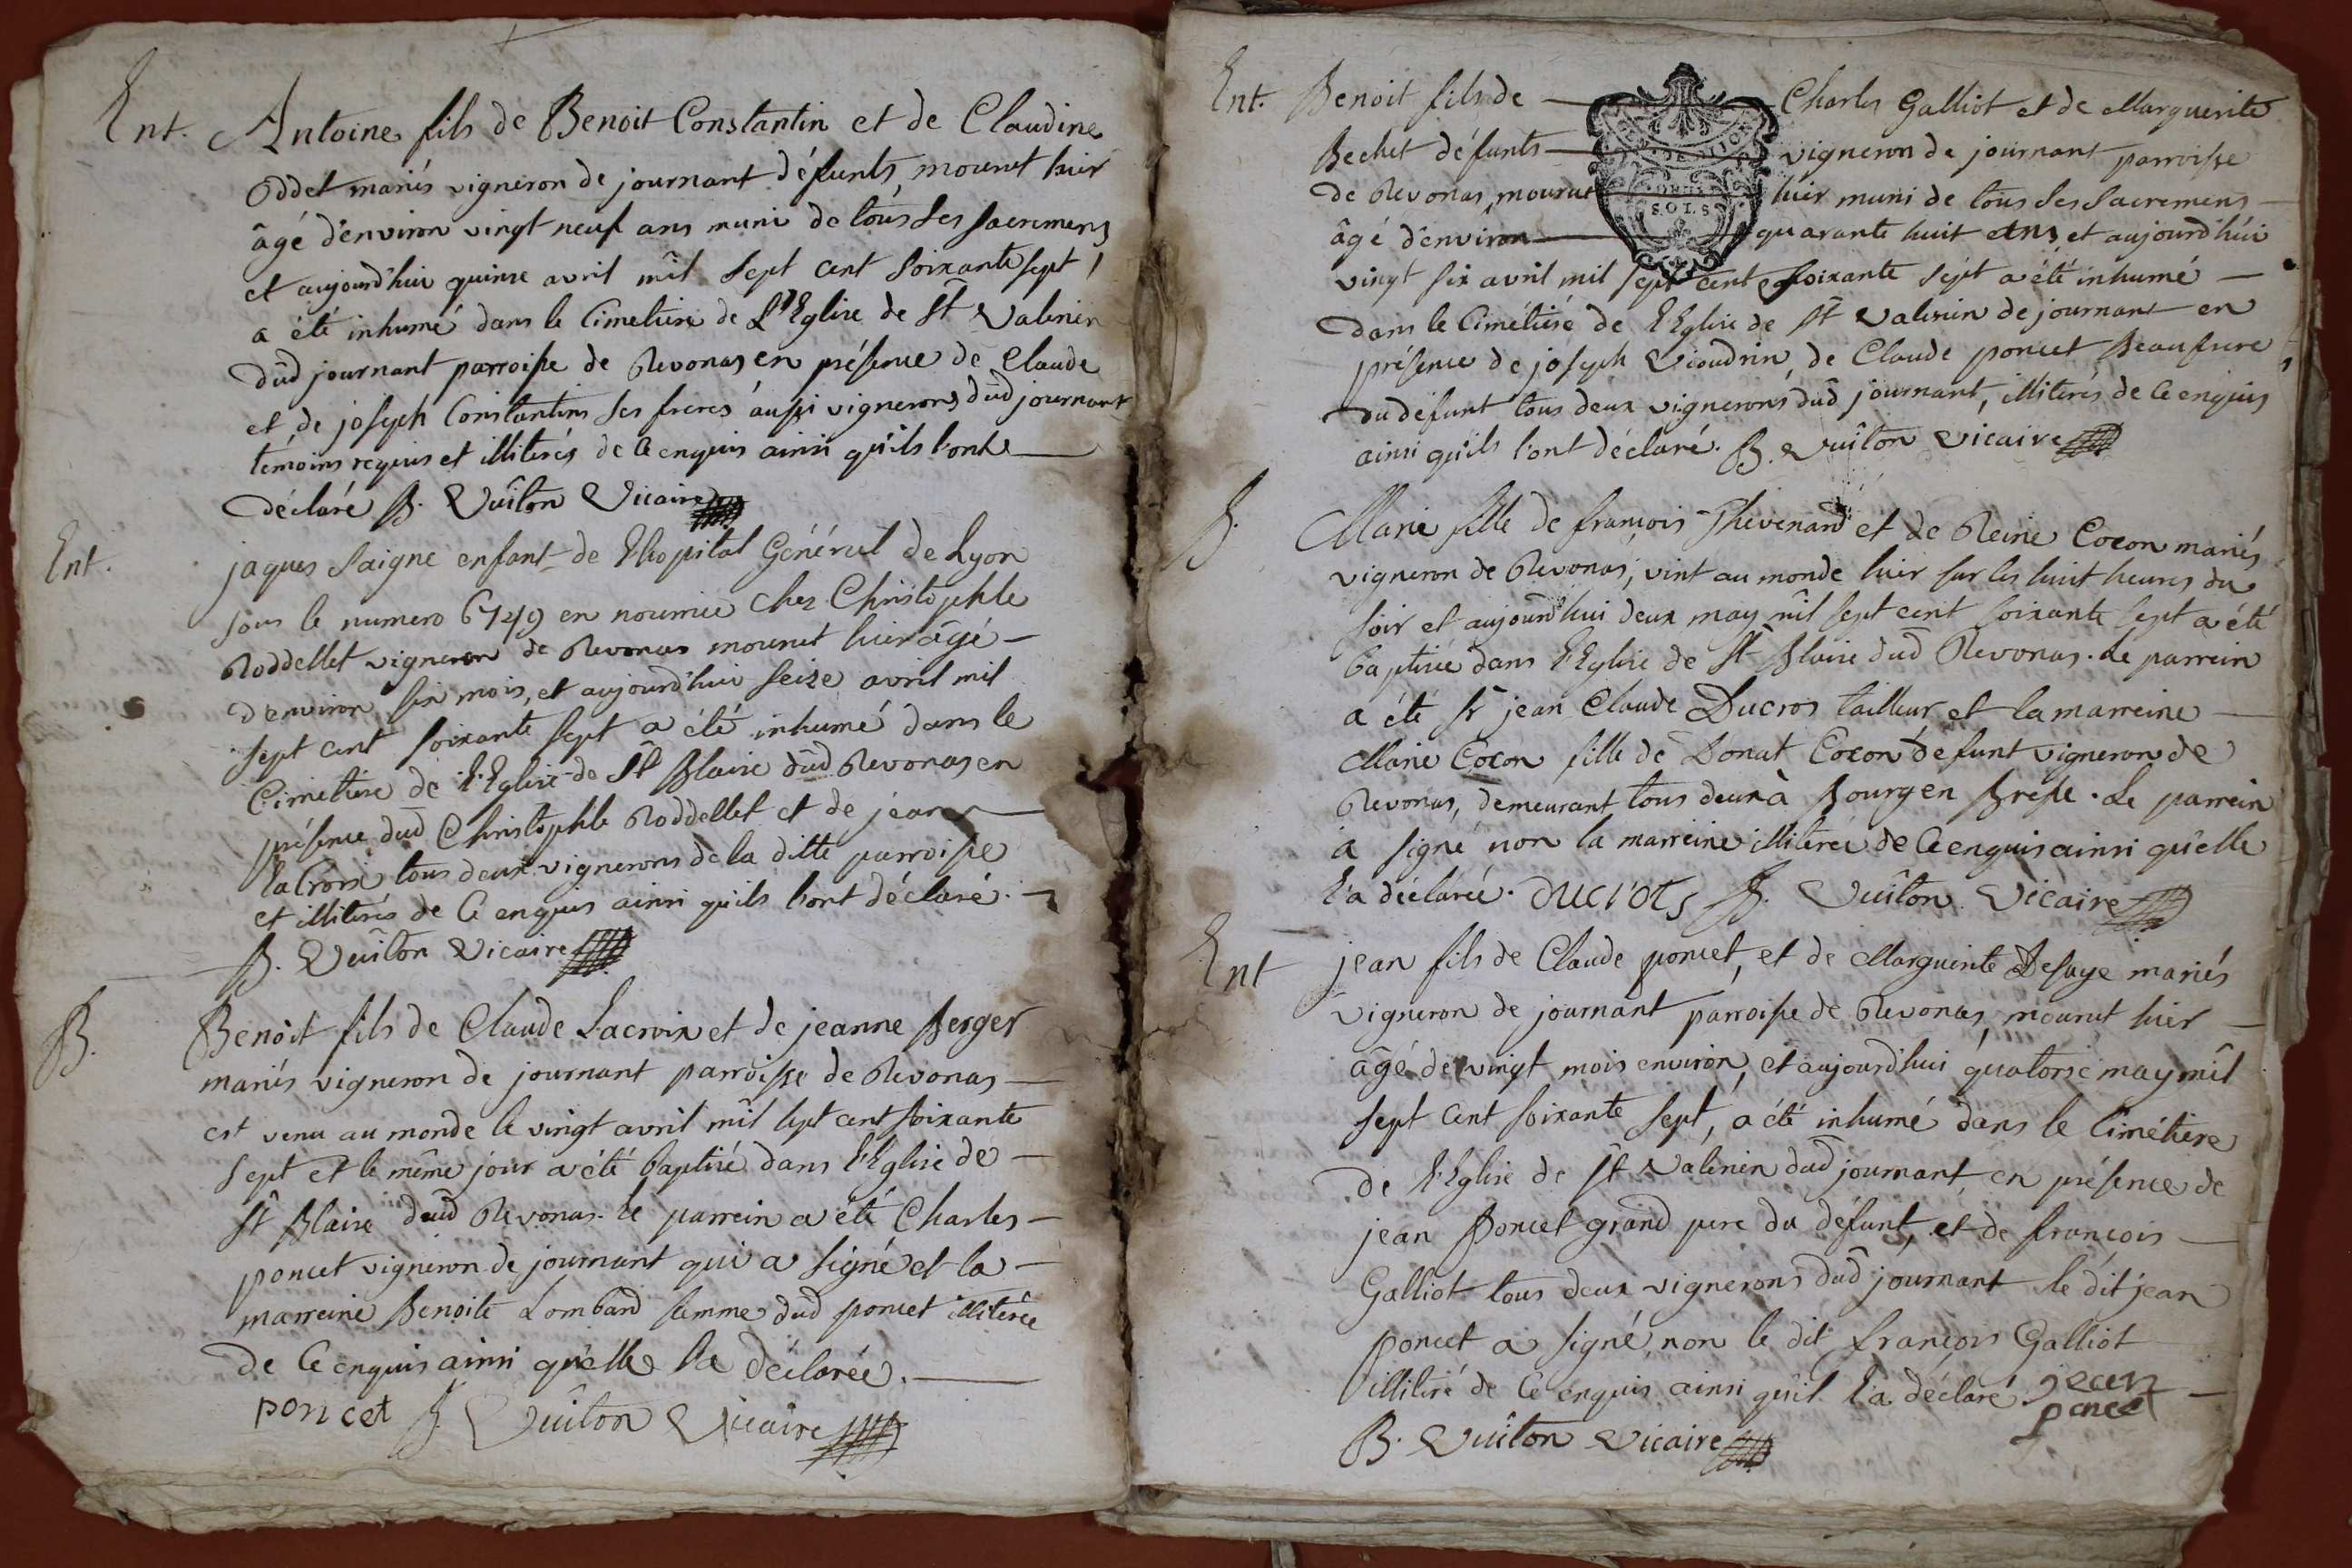 Ent. Antoine fils de Benoit Constantin et de Claudine
Oddet mariés vigneron de journant défunts, mourut hier
âgé d'environ vingt neuf ans muni de tous ses sacremens
et aujourd'hui quinse avril mil sept cent soixante sept,
a été inhumé dans le Cimetiere de L'Eglise de St Valerien
dud journant parroisse de Revonas en présence de Claude
et de joseph Constantins ses freres aussi vignerons dud journant
témoins requis et illiterés de ce enquis ainsi qu'ils l'ont
déclaré B. Vuiton Vicaire
Ent. jaques Saigne enfant de l'hopital Général de Lyon
sous le numero 6749 en nourrice chez Christophle
Roddellet vigneron de Revonas mourut hier âgé
d'environ six mois, et aujourd'hui seize avril mil
sept cent soixante sept a été inhumé dans le
Cimetiere de l'Eglise de St Blaise dud Revonas en
présence dud Christophle Roddellet et de jean
laCroix, tous deux vignerons de la ditte parroisse
et illiterés de ce enquis ainsi qu'ils l'ont déclaré.
B. Vuiton Vicaire
B. Benoit fils de Claude Lacroix et de jeanne Berger
mariés vigneron de journant parroisse de Revonas
est venu au monde le vingt avril mil sept cent soixante
sept et le même jour a été baptisé dans l'Eglise de
St Blaise dud Revonas. le parrein a été Charles
poncet vigneron de journant qui a signé et la
marreine Benoite Lombard femme dud poncet illiterée
de ce enquis ainsi qu'elle l'a déclarée.
poncet B. Vuiton Vicaire
Ent. Benoit fils de Charles Galliot et de Marguerite
Bechet défunts vigneron de journant parroisse
de Revonas, mourut hier muni de tous ses sacremens
âgé d'environ quarante huit ans, et aujourd'hui
vingt six avril mil sept cent soixante sept a été inhumé
dans le Cimétiére de l'Eglise de St Valerien de journant en
présence de joseph Vioudrin, de Claude poncet Beaufrere
du défunt tous deux vignerons dud journant, illiterés de ce enquis
ainsi qu'ils l'ont déclaré. B. Vuiton Vicaire
SOLS
B. Marie fille de françois Thevenard et de Reine Cocon mariés
vigneron de Revonas, vint au monde hier sur les huit heures du
soir et aujourd'hui deux may mil sept cent soixante sept a été
baptisée dans l'Eglise de St Blaise dud Revonas. Le parrein
a été Sr jean Claude Ducros tailleur et la marreine
Marie Cocon fille de Donat Cocon défunt vigneron de
Revonas, demeurant tous deux à Bourg en Bresse. Le parrein
a signé non la marreine illiterée de ce enquis ainsi qu'elle
l'a déclarée. ducrots B. Vuiton Vicaire
Ent jean fils de Claude poncet, et de Marguerite Defaye mariés
vigneron de journant parroisse de Revonas, mourut hier
âgé de vingt mois environ, et aujourd'hui quatorse may mil
sept cent soixante sept, a été inhumé dans le Cimétiere
de l'Eglise de St Valerien dud journant, en présence de
jean Poncet grand pere du défunt, et de françois
Galliot tous deux vignerons dud journant le dit jean
poncet a signé, non le dit françois Galliot
illiteré de ce enquis ainsi qu'il l'a déclaré. jean
poncet
B. Vuiton Vicaire